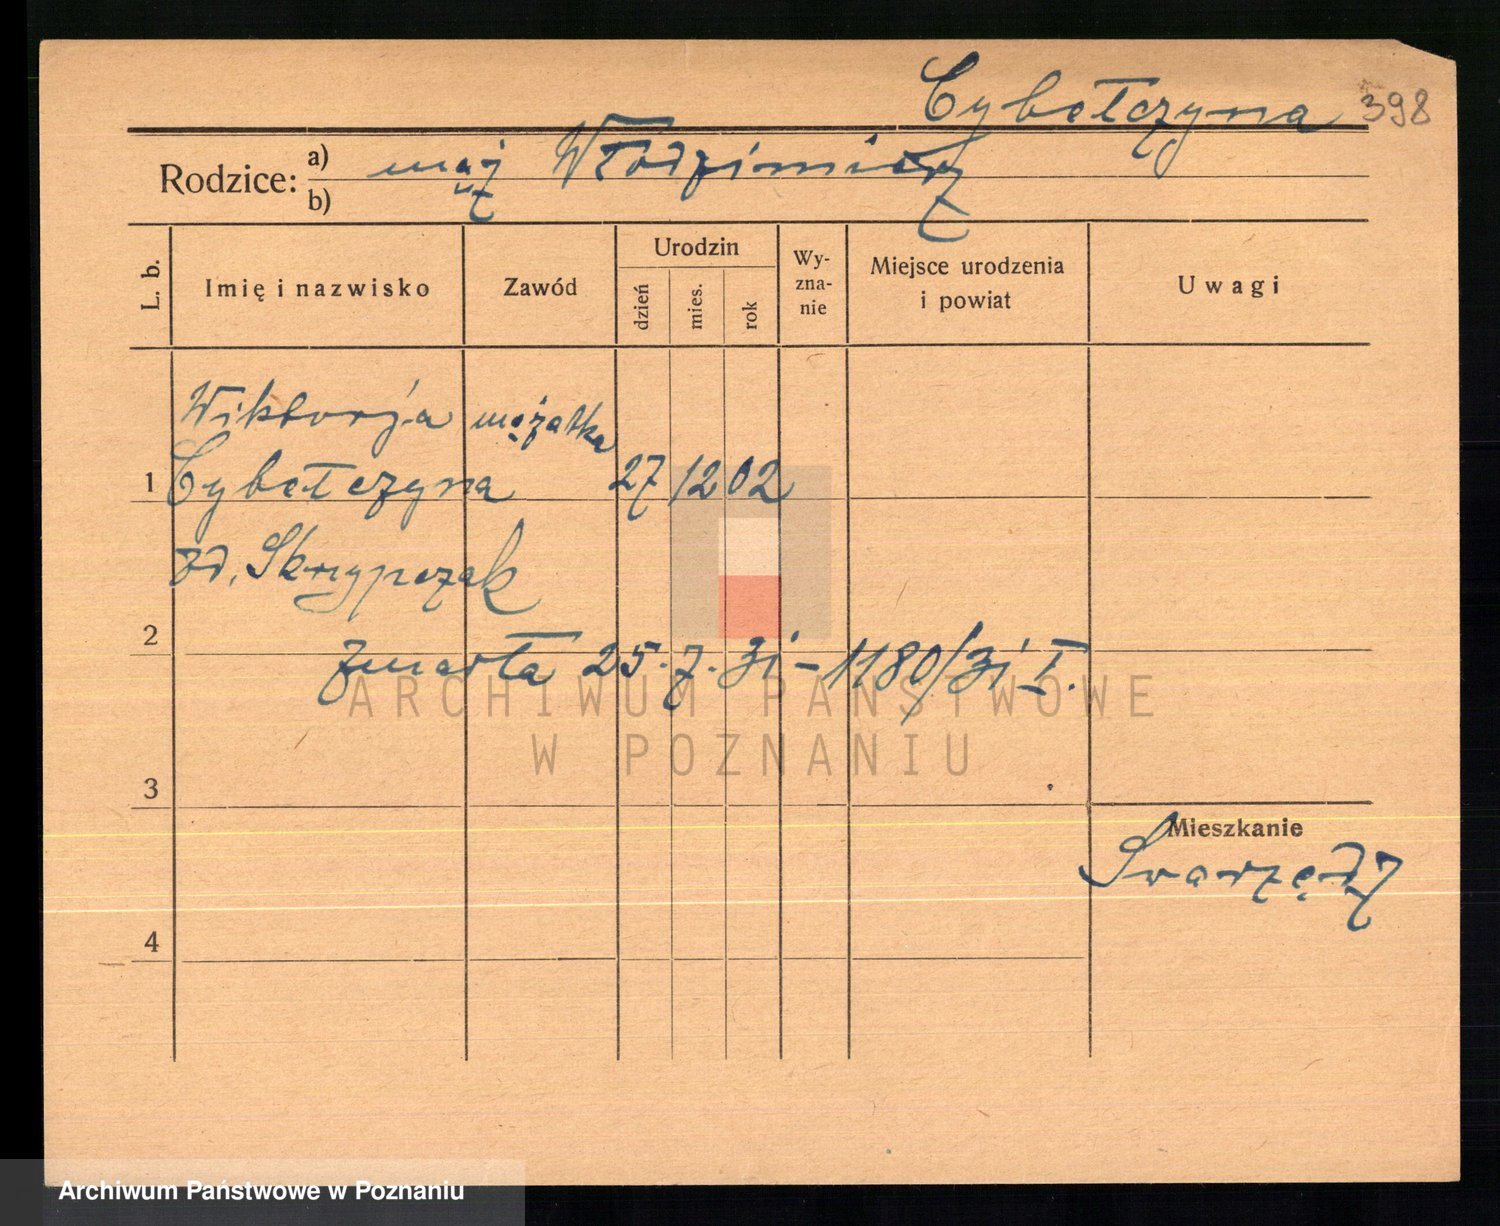 Cybełczyna 398
Rodzice: a) mąż Włodzimierz
b)
L. b.
Imię i nazwisko
Zawód
Urodzin
dzień
mies.
rok
Wy-
zna-
nie
Miejsce urodzenia
i powiat
Uwagi
Wiktorja mężatka
1 Cybełczyna 27 12 02
zd. Skrzypczak
2
zmarła 25.7.31 - 1180/31 I.
ARCHIWUM PAŃSTWOWE
W POZNANIU
3
Mieszkanie
Swarzędz
4
Archiwum Państwowe w Poznaniu